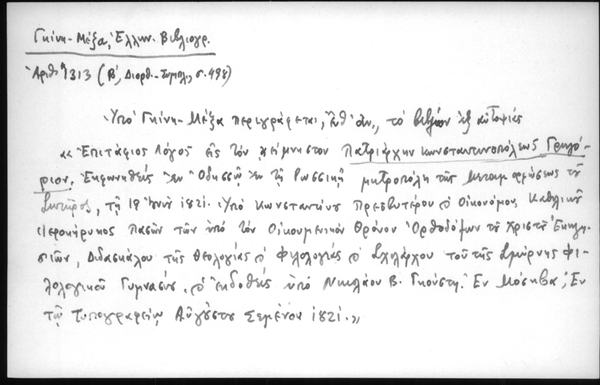 Γκίνη-Μέξα, Ἑλλην. Βιβλιογρ.
Ἀριθ. 1313 (Β', Διορθ.-Συμπλ., σ. 498)
Ὑπὸ Γκίνη-Μέξα περιγράφεται, , τὸ βιβλίον ἐξ αὐτοψίας
«Ἐπιτάφιος Λόγος εἰς τὸν ἀείμνηστον Πατριάρχην Κωνσταντινουπόλεως Γρηγό-
ριον, Ἐκφωνηθεὶς ἐν Ὀδησσῷ ἐν τῇ Ῥωσσικῇ μητροπόλῃ τῆς Μεταμορφώσεως τοῦ
Σωτῆρος, τῇ 19 Ἰουνίου 1821. Ὑπὸ Κωνσταντίνου Πρεσβυτέρου ϗ Οἰκονόμου, Καθολικοῦ
Ἱεροκήρυκος Πασῶν τῶν ὑπὸ τὸν Οἰκουμενικὸν Θρόνον Ὀρθοδόξων τοῦ Χριστοῦ Ἐκκλη-
σιῶν, Διδασκάλου τῆς Θεολογίας ϗ Φιλολογίας ϗ Σχολάρχου τοῦ τῆς Σμύρνης Φι-
λολογικοῦ Γυμνασίου, ϗ ἐκδοθεὶς ὑπὸ Νικολάου Β. Γκούστη. Ἐν Μόσκβᾳ, Ἐν
τῷ Τυπογραφείῳ Αὐγούστου Σεμένου 1821.»